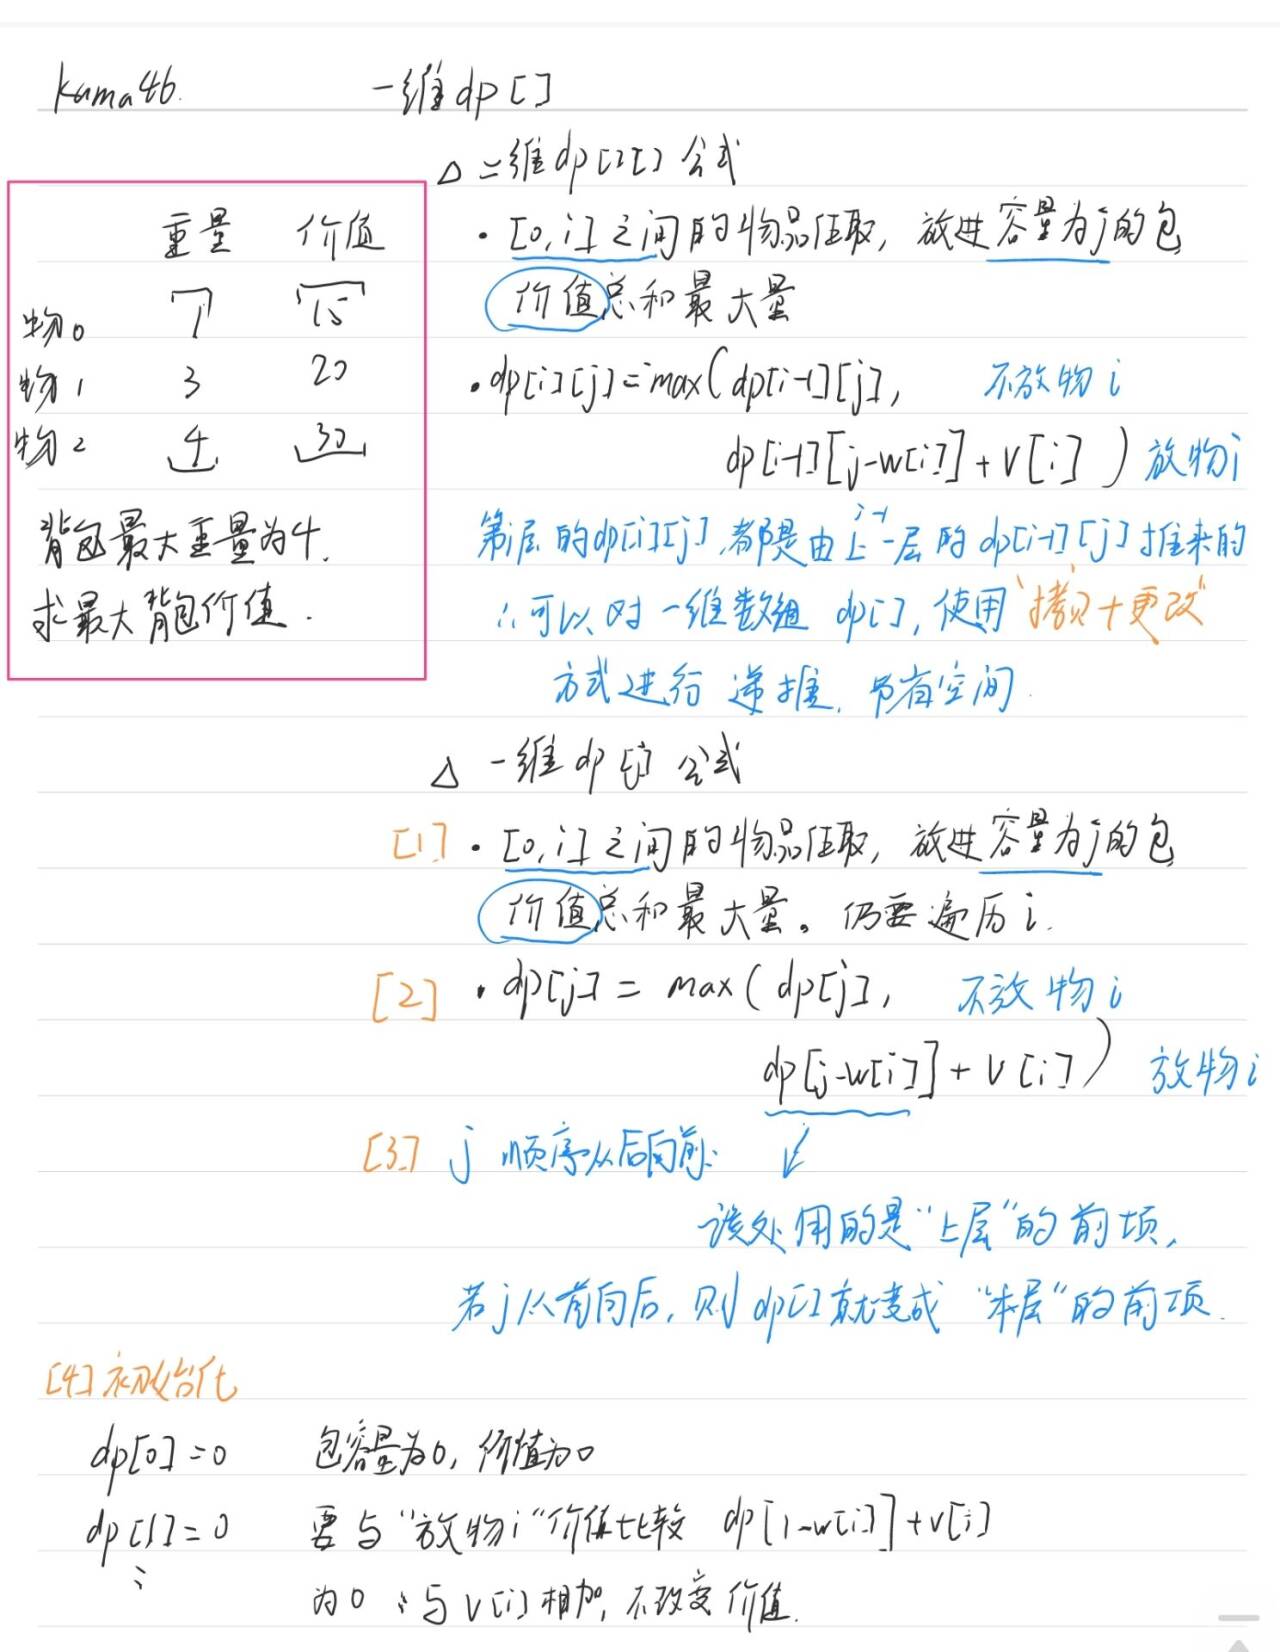 kama46. 一维dp[]
△ 二维dp[][] 公式
重量 价值
物0 1 15
物1 3 20
物2 4 30
背包最大重量为4.
求最大背包价值.
· [0,i]之间的物品任取, 放进容量为j的包
价值总和最大量
· dp[i][j]=max(dp[i-1][j], 不放物i
dp[i-1][j-w[i]]+v[i]) 放物i
i-1
第i层的dp[i][j],都是由上一层的dp[i-1][j]推来的
∴可以对一维数组 dp[], 使用"拷贝+更改"
方式进行递推, 节省空间.
△ 一维dp[j] 公式
[1] · [0,i]之间的物品任取, 放进容量为j的包
价值总和最大量。仍要遍历i.
[2] · dp[j] = max(dp[j], 不放物i
dp[j-w[i]]+v[i]) 放物i
[3] j 顺序从后向前:
该处用的是"上层"的前项,
若j从前向后, 则dp[]就变成"本层"的前项.
[4] 初始化
dp[0]=0 包容量为0, 价值为0
dp[1]=0 要与"放物i"价值比较 dp[1-w[i]]+v[i]
⋮ 为0 ∴与v[i]相加, 不改变价值.